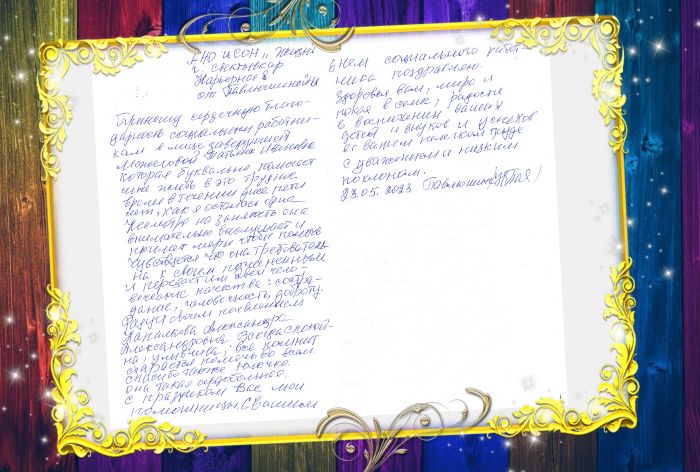 АНО ЦСОН „Жизнь
г. Сыктывкар
Карьерная 8
от Павлюшиной
Приношу сердечную благо-
дарность социальным работни-
кам в лице заведующей
Татьяне Ивановне
которая буквально помогает
мне жить в это трудное
время в течении уже пяти
лет, как я осталась одна
Несмотря на занятость она
внимательно выслушает и
примет меры чтобы помочь
Чувствуется что она требователь
на к своим подчиненным
и передает им свои чело-
веческие качества: состра-
дание, человечность, доброту.
Радует своим появлением
Александра
Александровна. Всегда спокой-
на, улыбчива, все помнит
старается помочь во всем
спасибо также Юлечке
она такая сердобольная.
С праздником Вас мои
помощницы. С Вашим
Днем социального работ
ника поздравляю.
Здоровья Вам, мира и
покоя в семье, радости
в воспитании ваших
детей и внуков и успехов
в вашем нелегком труде
с уважением и низким
поклоном.
23.05.2023 Павлюшина